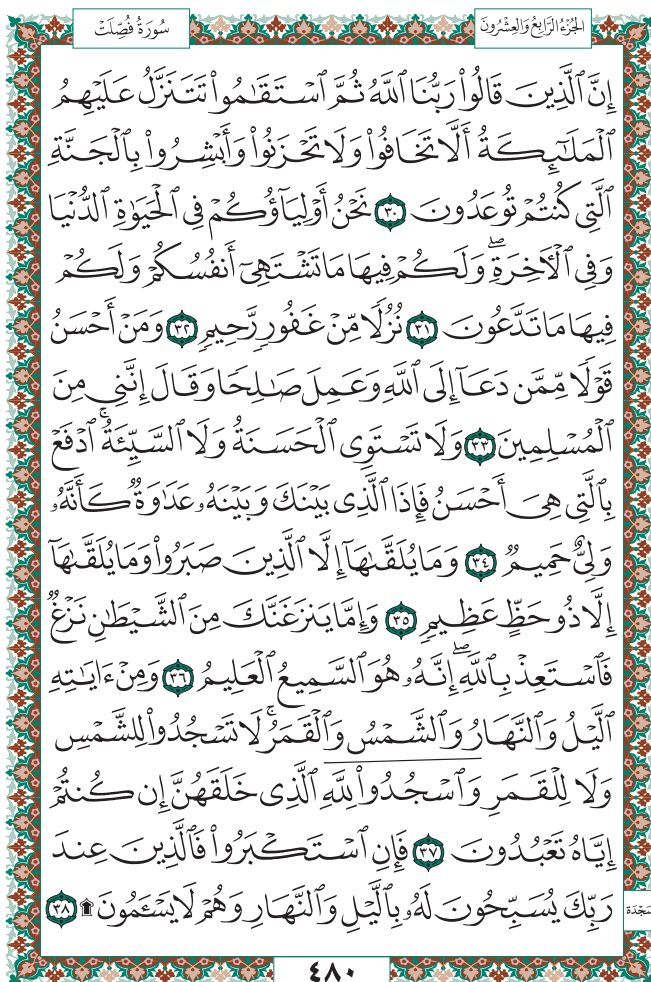 سُورَةُ فُصِّلَتْ
الجُزْءُ الرَّابِعُ وَالعِشْرُونَ
إِنَّ ٱلَّذِينَ قَالُوا۟ رَبُّنَا ٱللَّهُ ثُمَّ ٱسْتَقَـٰمُوا۟ تَتَنَزَّلُ عَلَيْهِمُ
ٱلْمَلَـٰٓئِكَةُ أَلَّا تَخَافُوا۟ وَلَا تَحْزَنُوا۟ وَأَبْشِرُوا۟ بِٱلْجَنَّةِ
ٱلَّتِى كُنتُمْ تُوعَدُونَ ٣٠ نَحْنُ أَوْلِيَآؤُكُمْ فِى ٱلْحَيَوٰةِ ٱلدُّنْيَا
وَفِى ٱلْـَٔاخِرَةِ ۖ وَلَكُمْ فِيهَا مَا تَشْتَهِىٓ أَنفُسُكُمْ وَلَكُمْ
فِيهَا مَا تَدَّعُونَ ٣١ نُزُلًا مِّنْ غَفُورٍ رَّحِيمٍ ٣٢ وَمَنْ أَحْسَنُ
قَوْلًا مِّمَّن دَعَآ إِلَى ٱللَّهِ وَعَمِلَ صَـٰلِحًا وَقَالَ إِنَّنِى مِنَ
ٱلْمُسْلِمِينَ ٣٣ وَلَا تَسْتَوِى ٱلْحَسَنَةُ وَلَا ٱلسَّيِّئَةُ ۚ ٱدْفَعْ
بِٱلَّتِى هِىَ أَحْسَنُ فَإِذَا ٱلَّذِى بَيْنَكَ وَبَيْنَهُۥ عَدَٰوَةٌ كَأَنَّهُۥ
وَلِىٌّ حَمِيمٌ ٣٤ وَمَا يُلَقَّىٰهَآ إِلَّا ٱلَّذِينَ صَبَرُوا۟ وَمَا يُلَقَّىٰهَآ
إِلَّا ذُو حَظٍّ عَظِيمٍ ٣٥ وَإِمَّا يَنزَغَنَّكَ مِنَ ٱلشَّيْطَـٰنِ نَزْغٌ
فَٱسْتَعِذْ بِٱللَّهِ ۖ إِنَّهُۥ هُوَ ٱلسَّمِيعُ ٱلْعَلِيمُ ٣٦ وَمِنْ ءَايَـٰتِهِ
ٱلَّيْلُ وَٱلنَّهَارُ وَٱلشَّمْسُ وَٱلْقَمَرُ ۚ لَا تَسْجُدُوا۟ لِلشَّمْسِ
وَلَا لِلْقَمَرِ وَٱسْجُدُوا۟ لِلَّهِ ٱلَّذِى خَلَقَهُنَّ إِن كُنتُمْ
إِيَّاهُ تَعْبُدُونَ ٣٧ فَإِنِ ٱسْتَكْبَرُوا۟ فَٱلَّذِينَ عِندَ
رَبِّكَ يُسَبِّحُونَ لَهُۥ بِٱلَّيْلِ وَٱلنَّهَارِ وَهُمْ لَا يَسْـَٔمُونَ ۩ ٣٨
سَجْدَة
٤٨٠